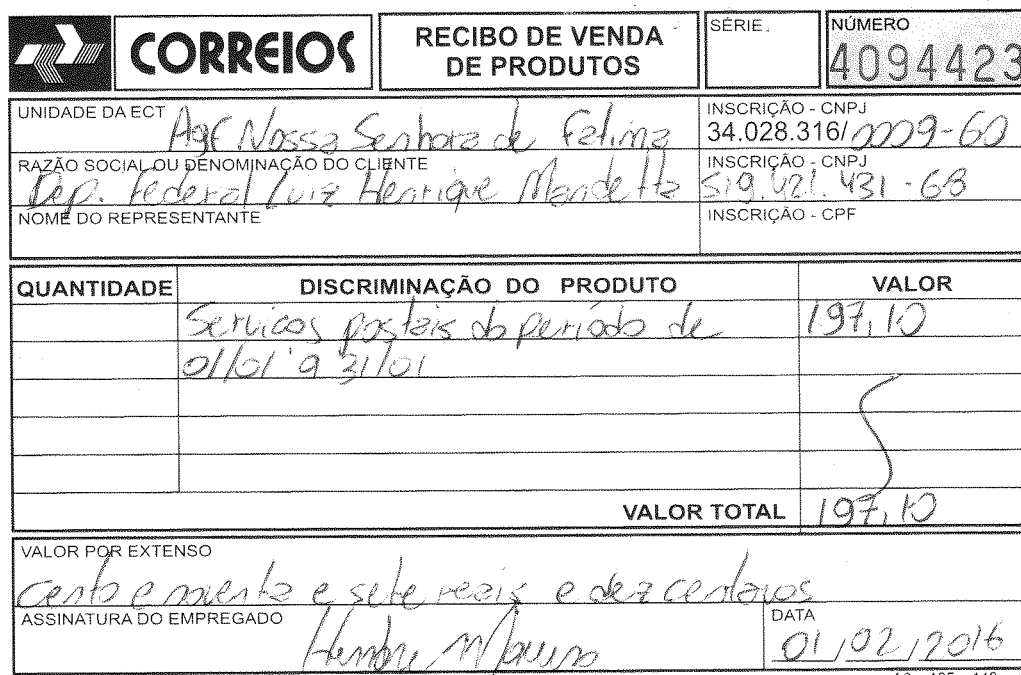 CORREIOS
RECIBO DE VENDA
DE PRODUTOS
SÉRIE
NÚMERO
4094423
UNIDADE DA ECT
Agf Nossa Senhora de Fatima
INSCRIÇÃO - CNPJ
34.028.316/0009-60
RAZÃO SOCIAL OU DENOMINAÇÃO DO CLIENTE
Dep. Federal Luiz Henrique Mandetta
INSCRIÇÃO - CNPJ
519.421.431-68
NOME DO REPRESENTANTE
INSCRIÇÃO - CPF
QUANTIDADE DISCRIMINAÇÃO DO PRODUTO VALOR
Servicos postais do período de 197,10
01/01 a 31/01
VALOR TOTAL 197,10
VALOR POR EXTENSO
cento e noventa e sete reais e dez centavos
ASSINATURA DO EMPREGADO
DATA
01/02/2016